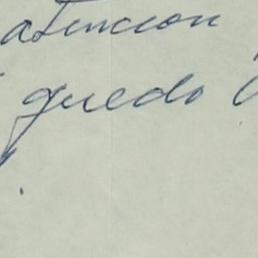 atencion
quedo